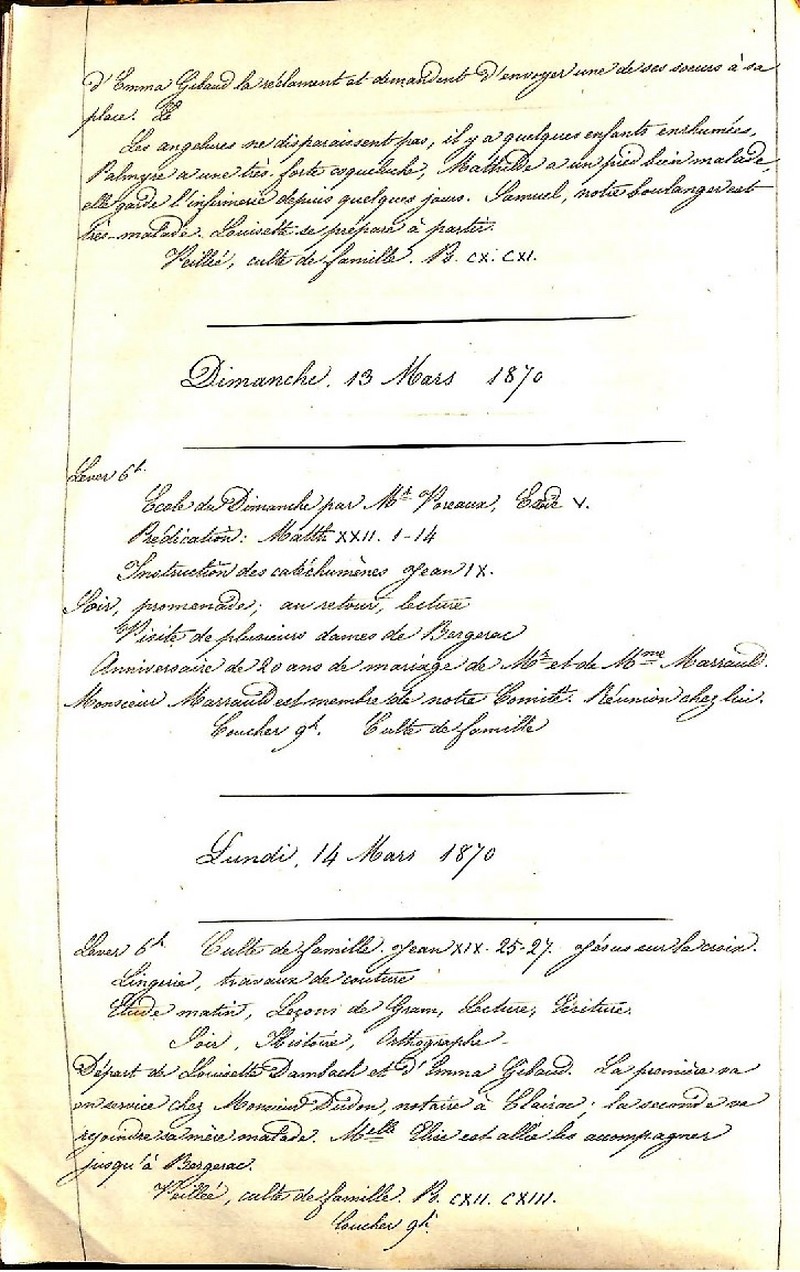 d'Emma Gibaud la réclament et demandent d'envoyer une de ses soeurs à sa
place. Le
Les angelures ne disparaissent pas, il y a quelques enfants enrhumées,
Palmyre a une très-forte coqueluche, Mathilde a un pied bien malade,
elle garde l'infirmerie depuis quelques jours. Samuel, notre boulanger est
très-malade. Louisette se prépare à partir.
Veillée, culte de famille. Ps. CX. CXI.
Dimanche, 13 Mars 1870
Lever 6h.
Ecole du Dimanche par Mr
Prédication: Matth XXII. 1-14
Instruction des catéchumènes Jean IX.
Soir, promenade; au retour, lecture
Visite de plusieurs dames de Bergerac
Anniversaire de 20 ans de mariage de Mr et de Mme Marrauld.
Monsieur Marrauld est membre de notre Comité. Réunion chez lui.
Coucher 9h. Culte de famille
Lundi, 14 Mars 1870
Lever 6h Culte de famille. Jean XIX. 25-27. Jésus sur la croix.
Lingerie, travaux de couture
Etude matin, Leçons de Gram, Lecture, Ecriture,
Soir, Histoire, Orthographe.
Départ de Louisette Dambach et d'Emma Gibaud. La première va
en service chez Monsieur Dudon, notaire à Clairac; la seconde va
rejoindre sa mère malade. Melle est allée les accompagner
jusqu'à Bergerac.
Veillée, culte de famille. Ps. CXII. CXIII.
Coucher 9h.